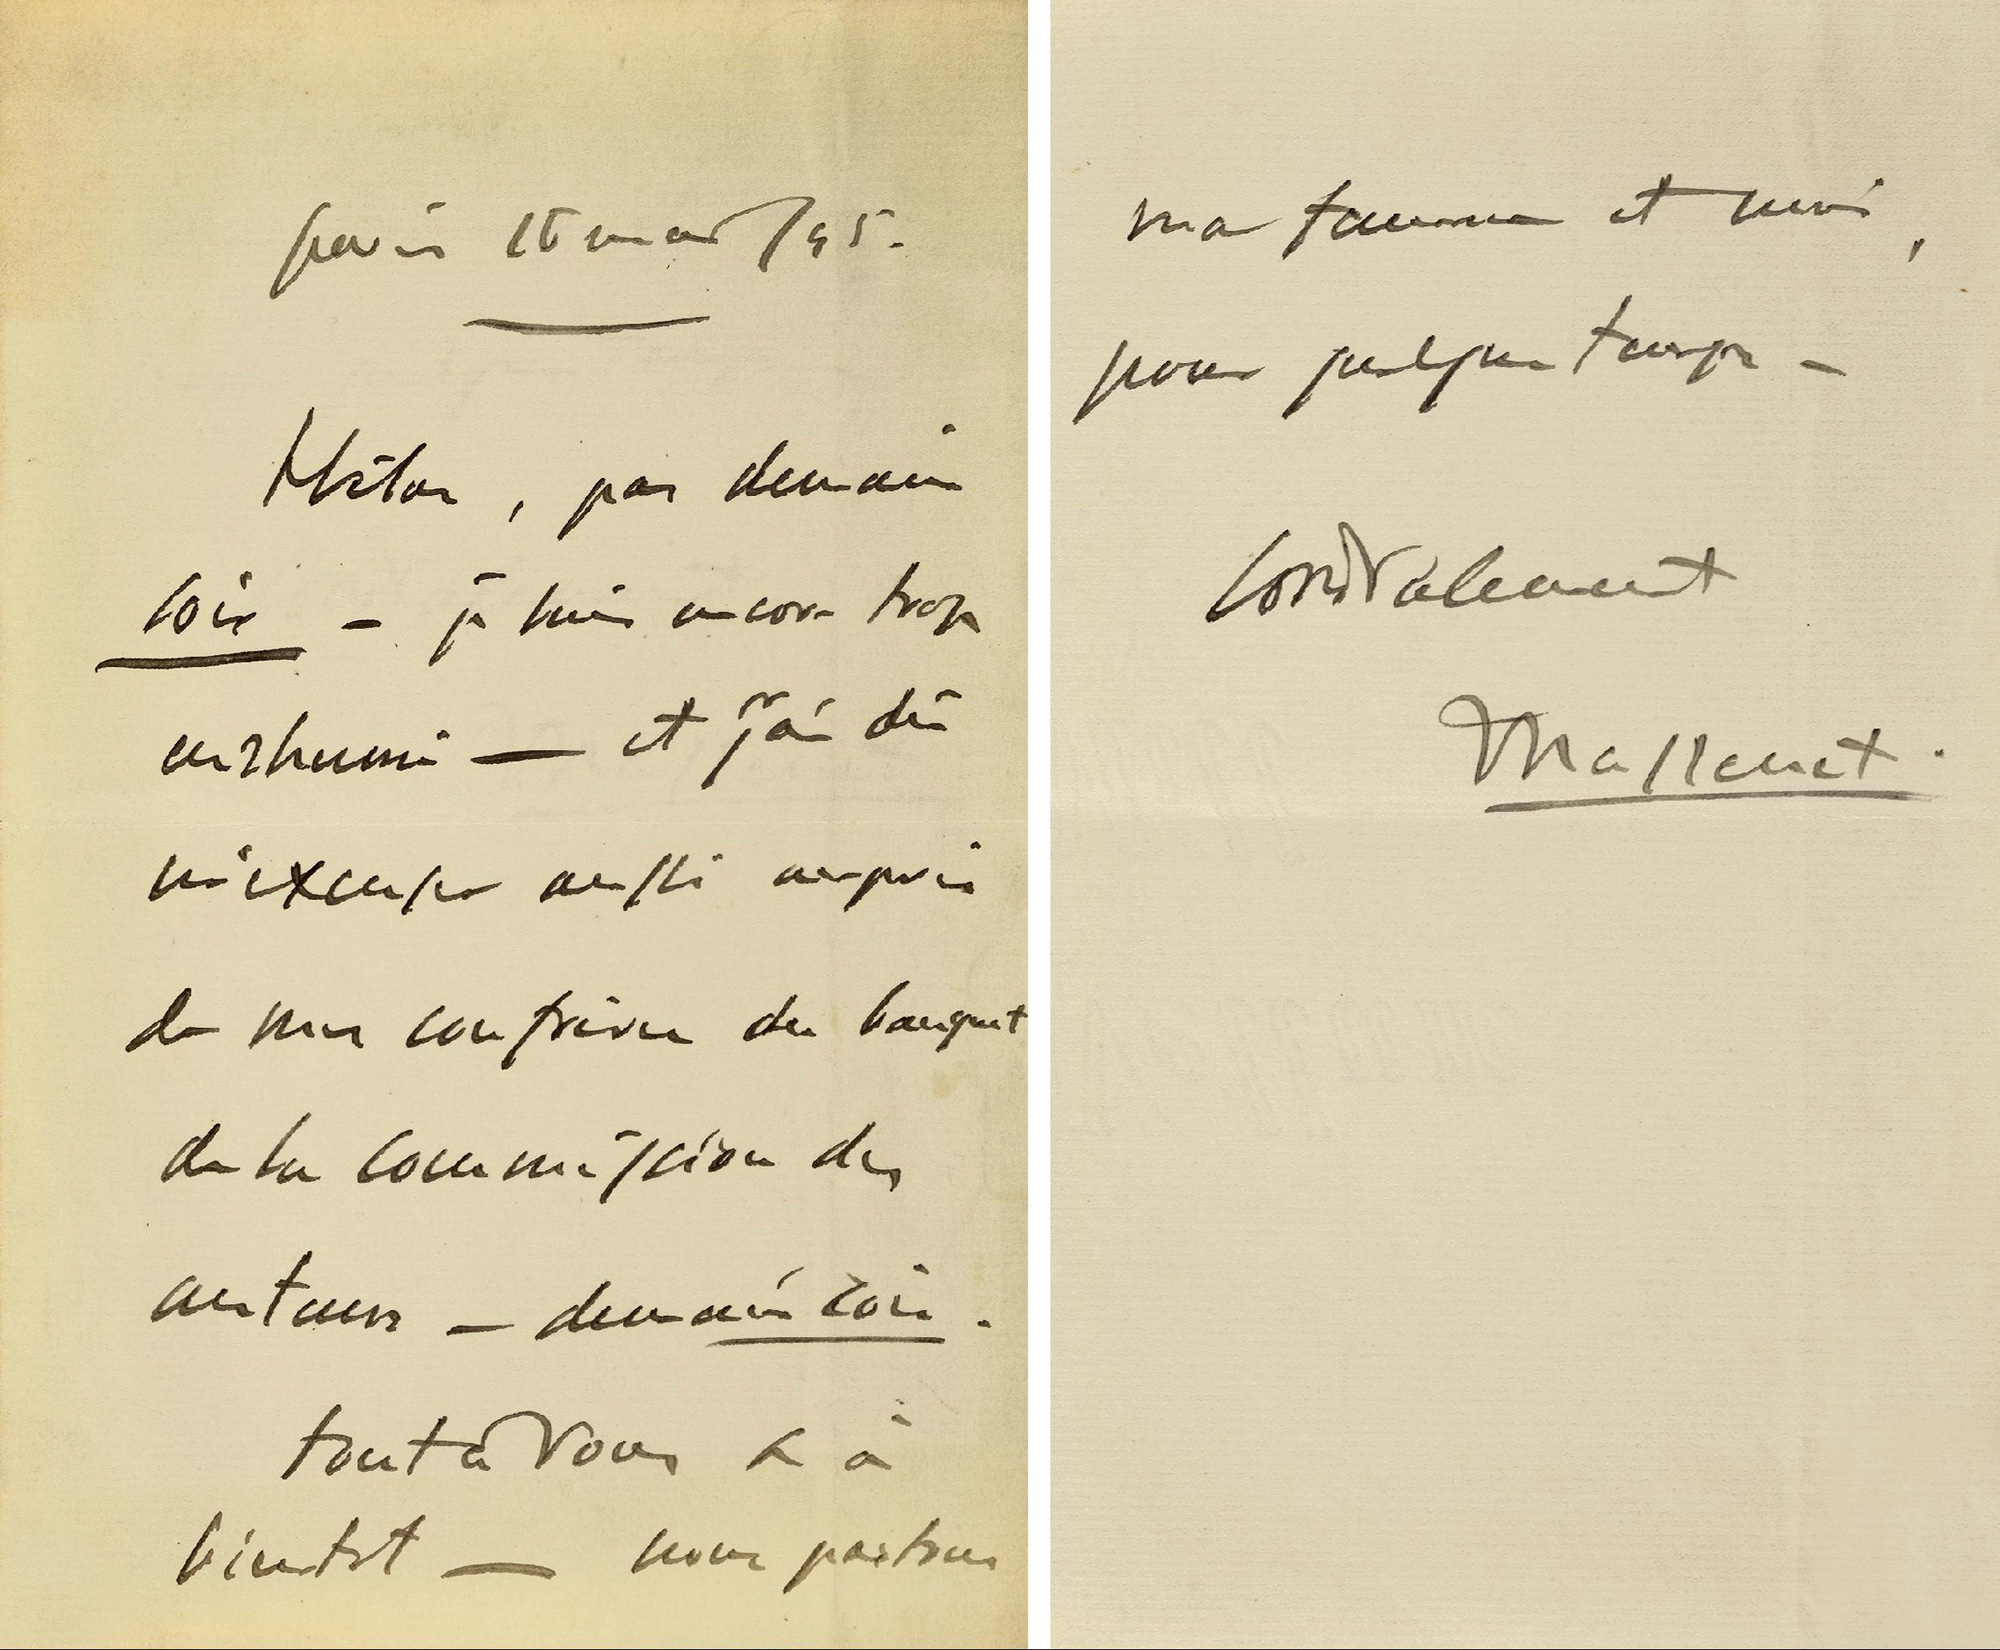 Paris 16 mars /95.
Hélas, pas demain
soir – je suis encore trop
enrhumé — et j'ai dû
m'excuser aussi auprès
de mes confrères du banquet
de la commission des
auteurs – demain soir.
tout à vous & à
bientôt — nous partons
ma femme et moi,
pour quelque temps –
Cordialement
Massenet.